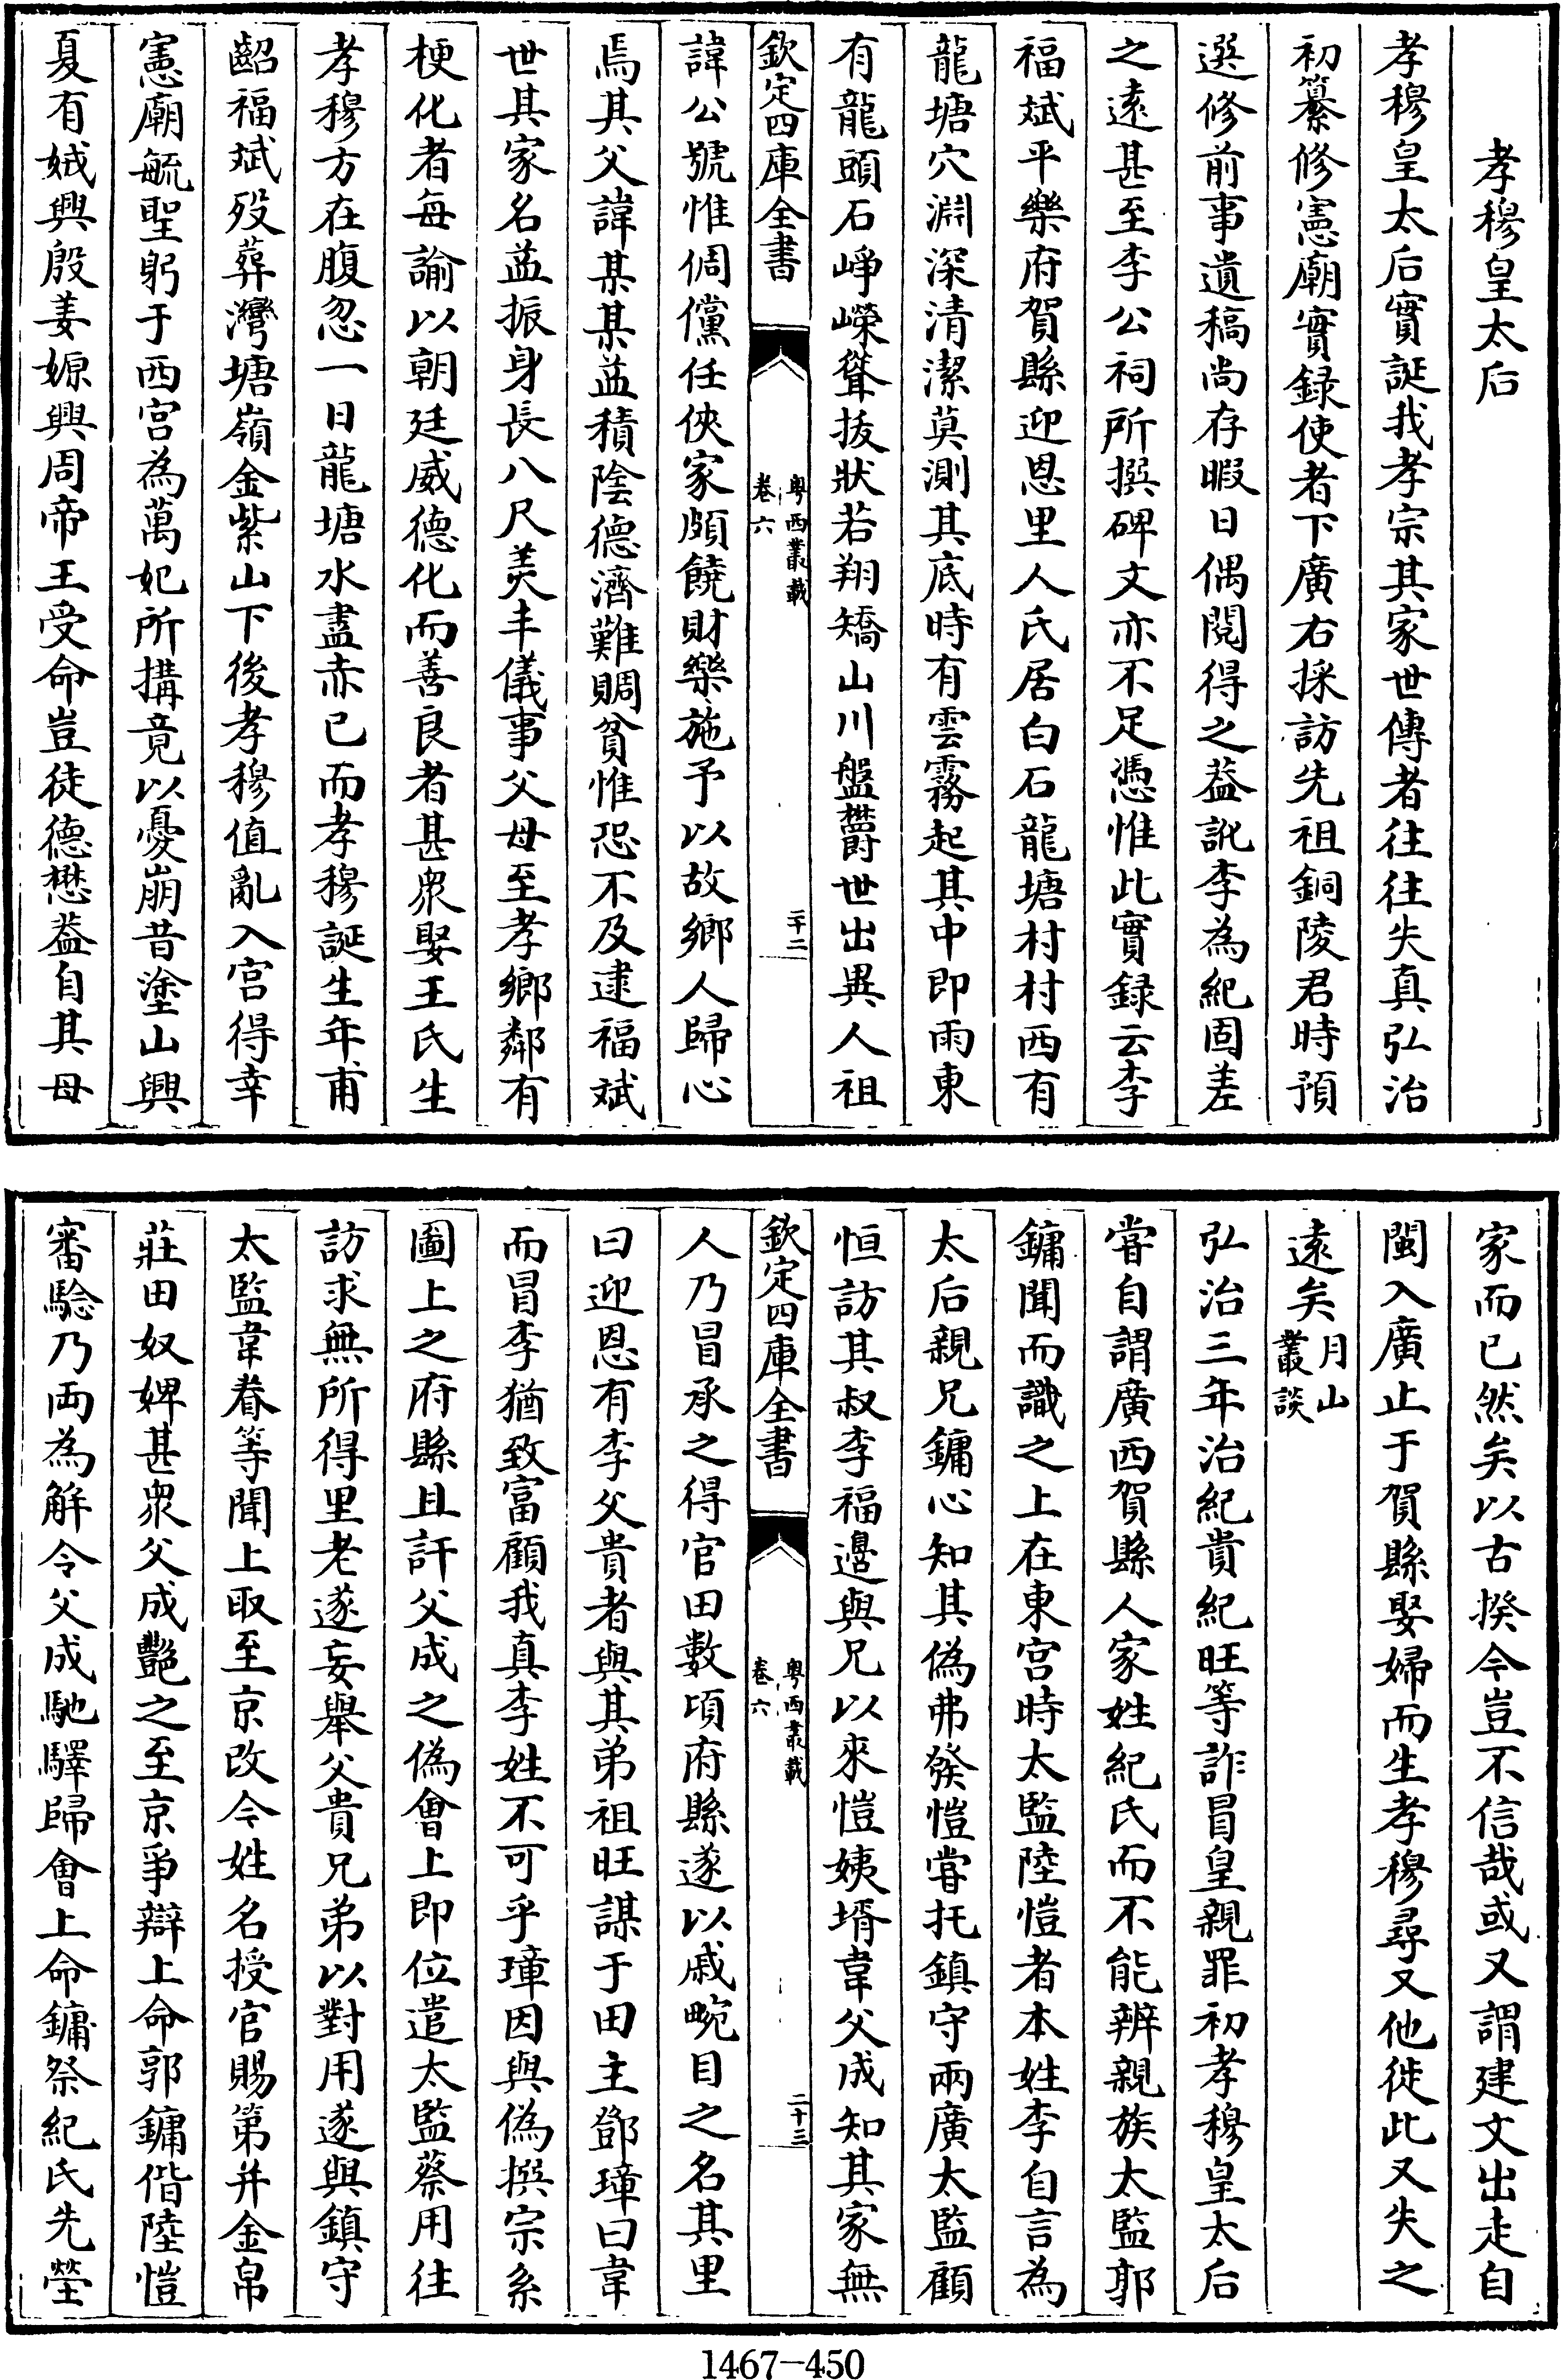 孝穆皇太后
孝穆皇太后實誕我孝宗其家世傳者往往失真弘治
初纂修憲廟實録使者下廣右採訪先祖銅陵君時預
選修前事遺稿尚存暇日偶閲得之葢訛李為紀固差
之遠甚至李公祠所撰碑文亦不足憑惟此實録云李
福斌平樂府賀縣迎恩里人氏居白石龍塘村村西有
龍塘穴淵深清潔莫測其底時有雲霧起其中即雨東
有龍頭石崢嶸聳拔狀若翔矯山川盤鬱世出異人祖
欽定四庫全書
粤西叢載
卷六
二十二
諱公號惟倜儻任俠家頗饒財樂施予以故鄉人歸心
焉其父諱某某益積陰德濟難賙貧惟恐不及逮福斌
世其家名益振身長八尺美丰儀事父母至孝鄉鄰有
梗化者每諭以朝廷威德化而善良者甚衆娶王氏生
孝穆方在腹忽一日龍塘水盡赤已而孝穆誕生年甫
齠福斌歿葬灣塘嶺金紫山下後孝穆值亂入宫得幸
憲廟毓聖躬于西宫為萬妃所搆竟以憂崩昔塗山興
夏有娀興殷姜嫄興周帝王受命豈徒德懋葢自其母
家而已然矣以古揆今豈不信哉或又謂建文出走自
閩入廣止于賀縣娶婦而生孝穆尋又他徙此又失之
遠矣月山叢談
弘治三年治紀貴紀旺等詐冒皇親罪初孝穆皇太后
嘗自謂廣西賀縣人家姓紀氏而不能辨親族太監郭
鏞聞而識之上在東宫時太監陸愷者本姓李自言為
太后親兄鏞心知其偽弗發愷嘗托鎮守兩廣太監顧
恒訪其叔李福邉與兄以來愷姨壻韋父成知其家無
欽定四庫全書
粤西叢載
卷六
二十三
人乃冒承之得官田數頃府縣遂以戚畹目之名其里
曰迎恩有李父貴者與其弟祖旺謀于田主鄧璋曰韋
而冒李猶致富顧我真李姓不可乎璋因與偽撰宗系
圖上之府縣且訐父成之偽會上即位遣太監蔡用往
訪求無所得里老遂妄舉父貴兄弟以對用遂與鎮守
太監韋眷等聞上取至京改今姓名授官賜第并金帛
莊田奴婢甚衆父成艷之至京爭辯上命郭鏞偕陸愷
審騐乃两為解令父成馳驛歸會上命鏞祭紀氏先塋
1467—450